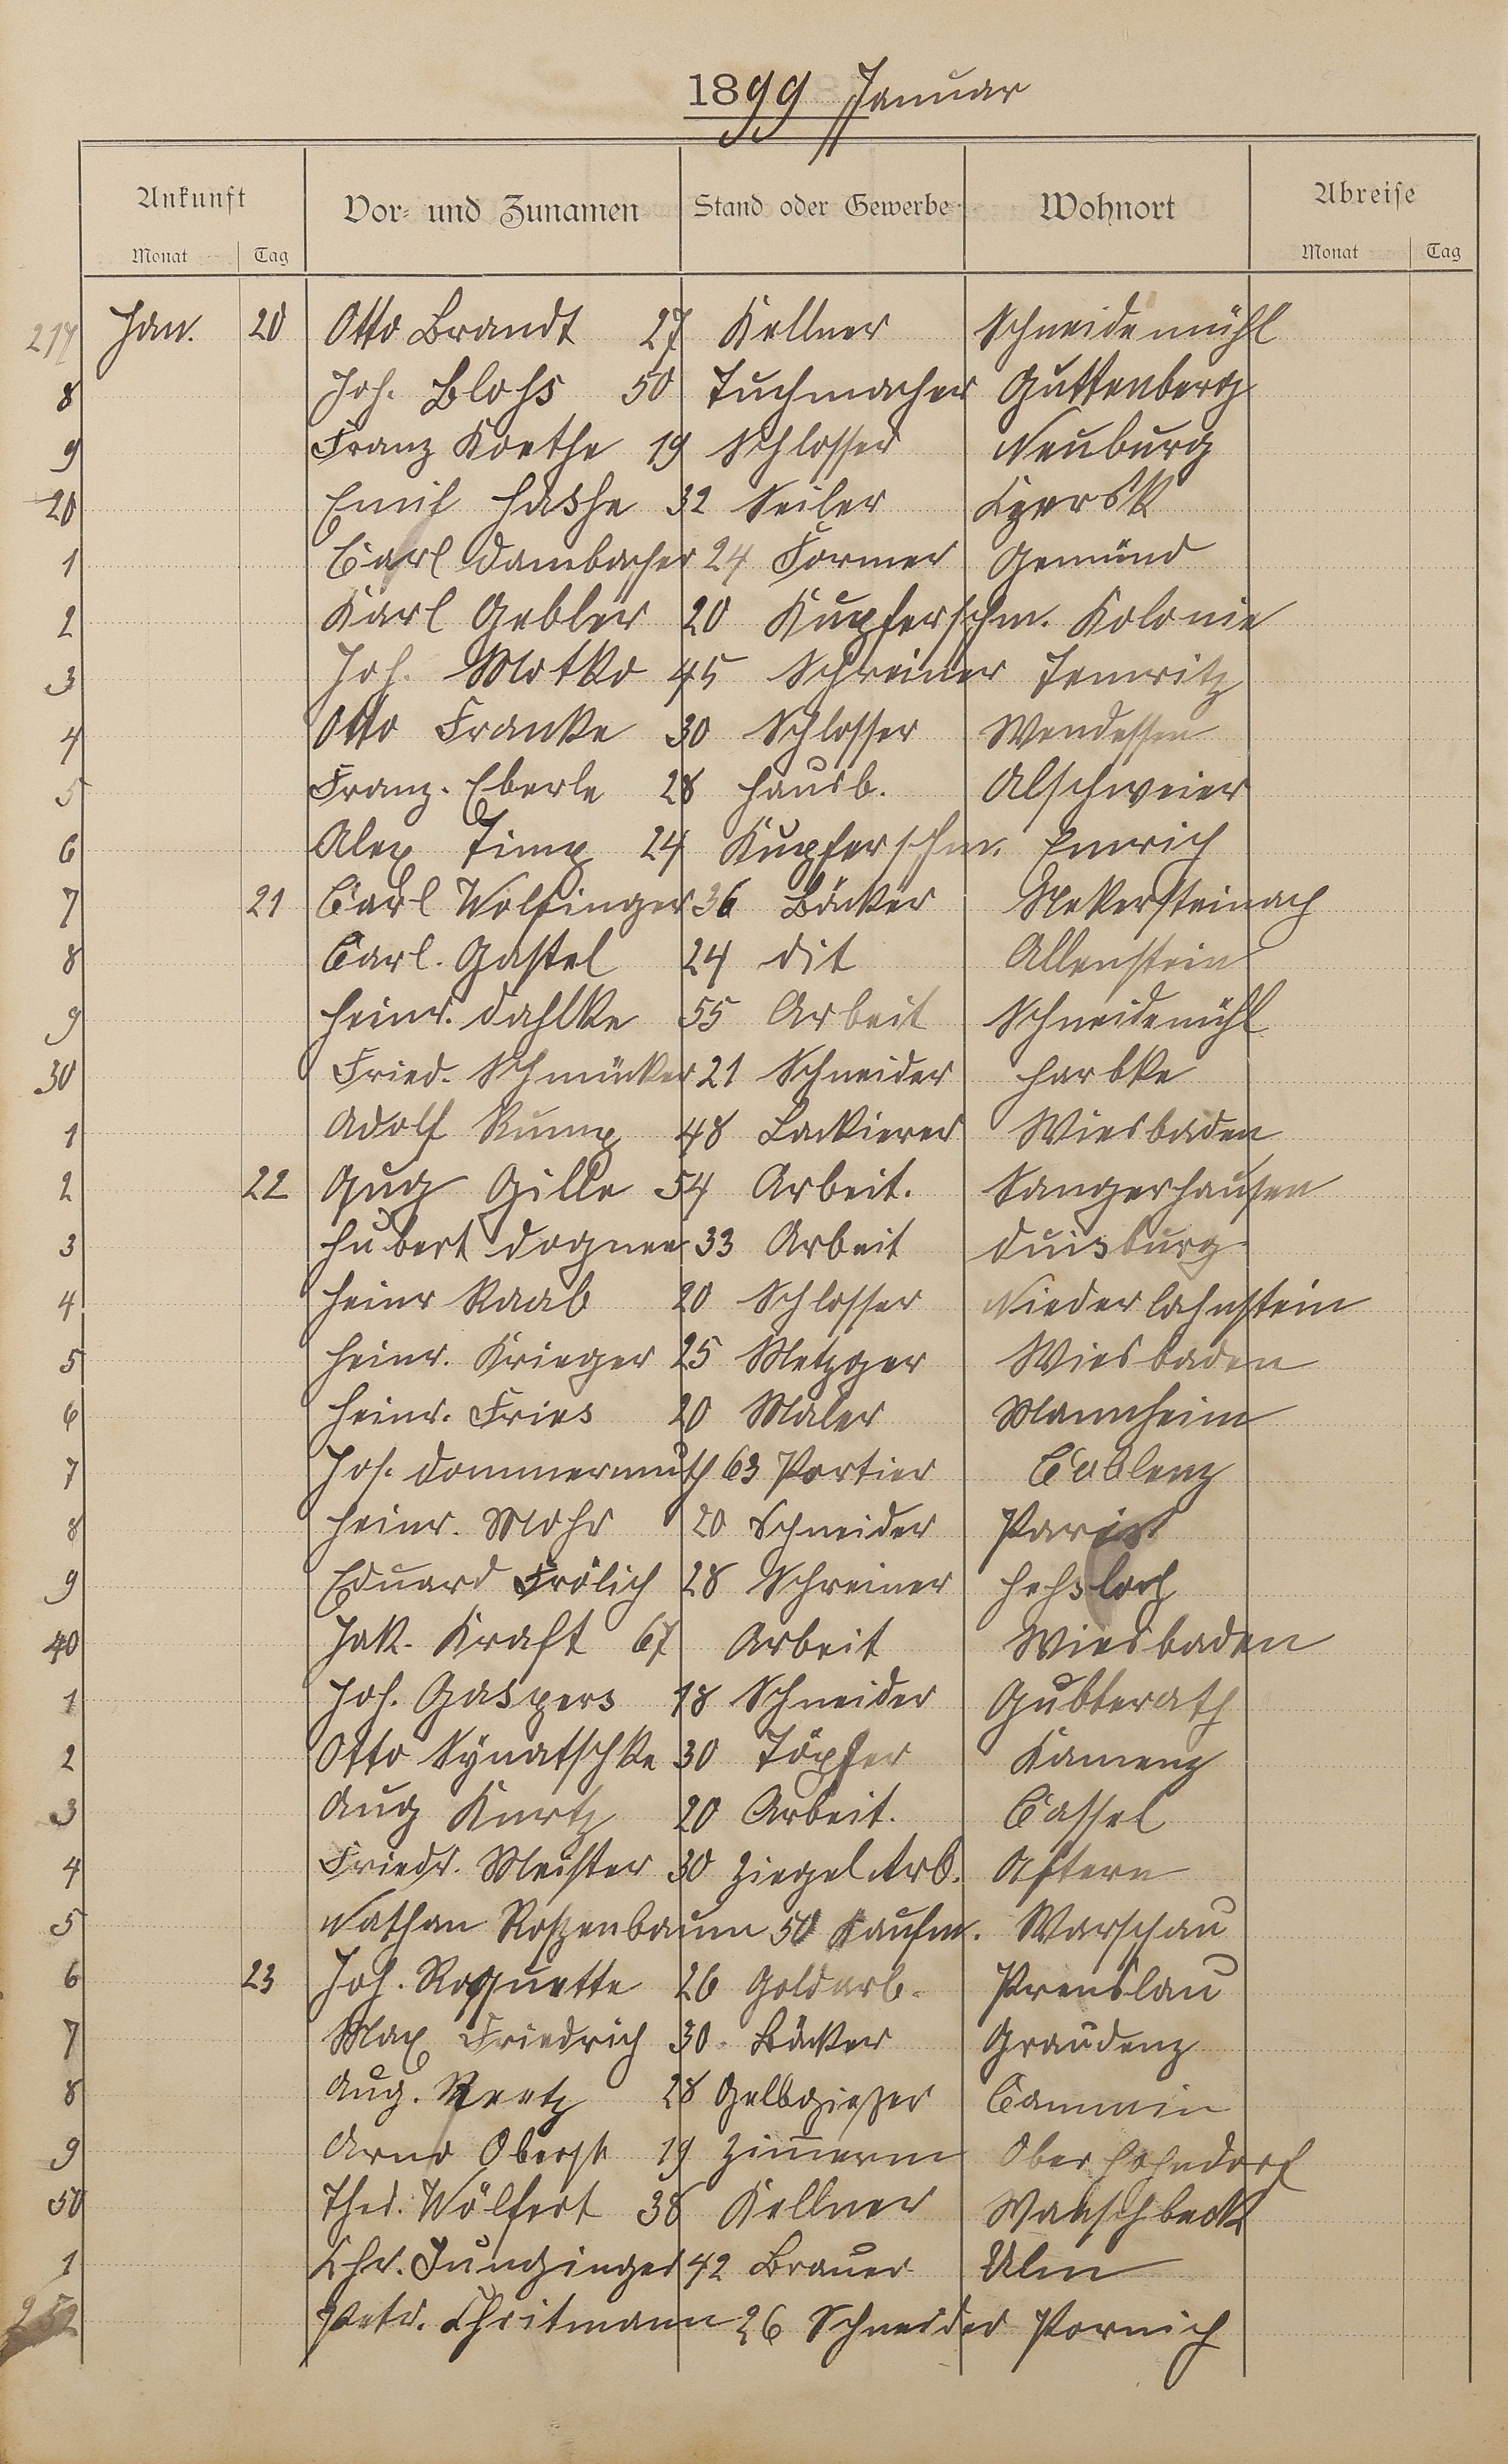 1899 Januar
Ankunft Vor- und Zunamen Stand oder Gewerbe Wohnort Abreise
Monat Tag Monat Tag
217 Jan. 20 Otto Brandt 27 Kellner Schneidemühl
8 Joh. Blohs 50 Tuchmacher Guttenberg
9 Franz Koethe 19 Schlosser Neuburg
20 Emil Hashe 32 Seiler Czersk
1 Carl Dambacher 24 Former Gemünd
2 Karl Gebler 20 Kupferschm. Kolonie
3 Joh. Motko 45 Schreiner Temritz
4 Otto Franke 30 Schlosser Wendessen
5 Franz. Eberle 28 Hausb. Alschweier
6 Alex Timp 24 Kupferschm. Emrich
7 21 Carl Wolfinger 36 Bäcker Nekersteinach
8 Carl. Gastel 24 dit Allenstein
9 Heinr. Dahlke 55 Arbeit Schneidemühl
30 Fried. Schmücker 21 Schneider Harbke
1 Adolf Rump 48 Lackierer Wiesbaden
2 22 Aug Gille 54 Arbeit. Sangerhausen
3 Hubert Dognee 33 Arbeit Duisburg
4 Heinr Raab 20 Schlosser Niederlahnstein
5 Heinr. Krieger 25 Metzger Wiesbaden
6 Heinr. Fries 20 Maler Mannheim
7 Jos. Dommermuth 63 Portier Coblenz
8 Heinr. Mohr 20 Schneider
9 Eduard Frölich 28 Schreiner Hehsloch
40 Jak. Kraft 67 Arbeit Wiesbaden
1 Joh. Gaspers 18 Schneider Gubberath
2 Otto Synatschke 30 Töpfer Kamenz
3 Aug Kurtz 20 Arbeit. Cassel
4 Friedr. Meister 30 Ziegelarb. Astern
5 Nathan Roszenbaum 50 Kaufm. Warschau
6 23 Joh. Roquette 26 Goldarb. Prenslau
7 Max Friedrich 30 Bäcker Graudenz
8 Aug. Reetz 28 Gelbgießer Cammin
9 Arno Oberst 19 Zimmerm Oberhohndorf
50 Thed. Wölfert 38 Kellner Wanschbeck
1 Chr. Junginger 42 Brauer Ulm
252 Petr. Christmann 26 Schneider Pornich